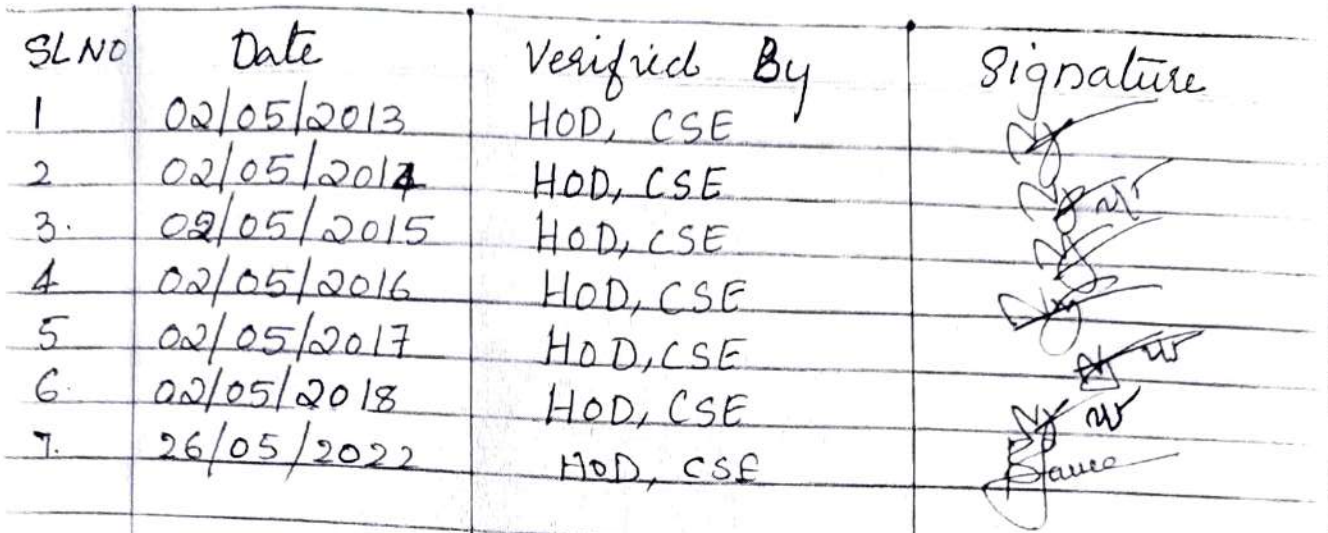 SL NO Date Verified By Signature
1 02/05/2013 HOD, CSE
2 02/05/2014 HOD, CSE
3. 02/05/2015 HOD, CSE
4 02/05/2016 HOD, CSE
5 02/05/2017 HOD, CSE
6. 02/05/2018 HOD, CSE
7. 26/05/2022 HOD, CSE